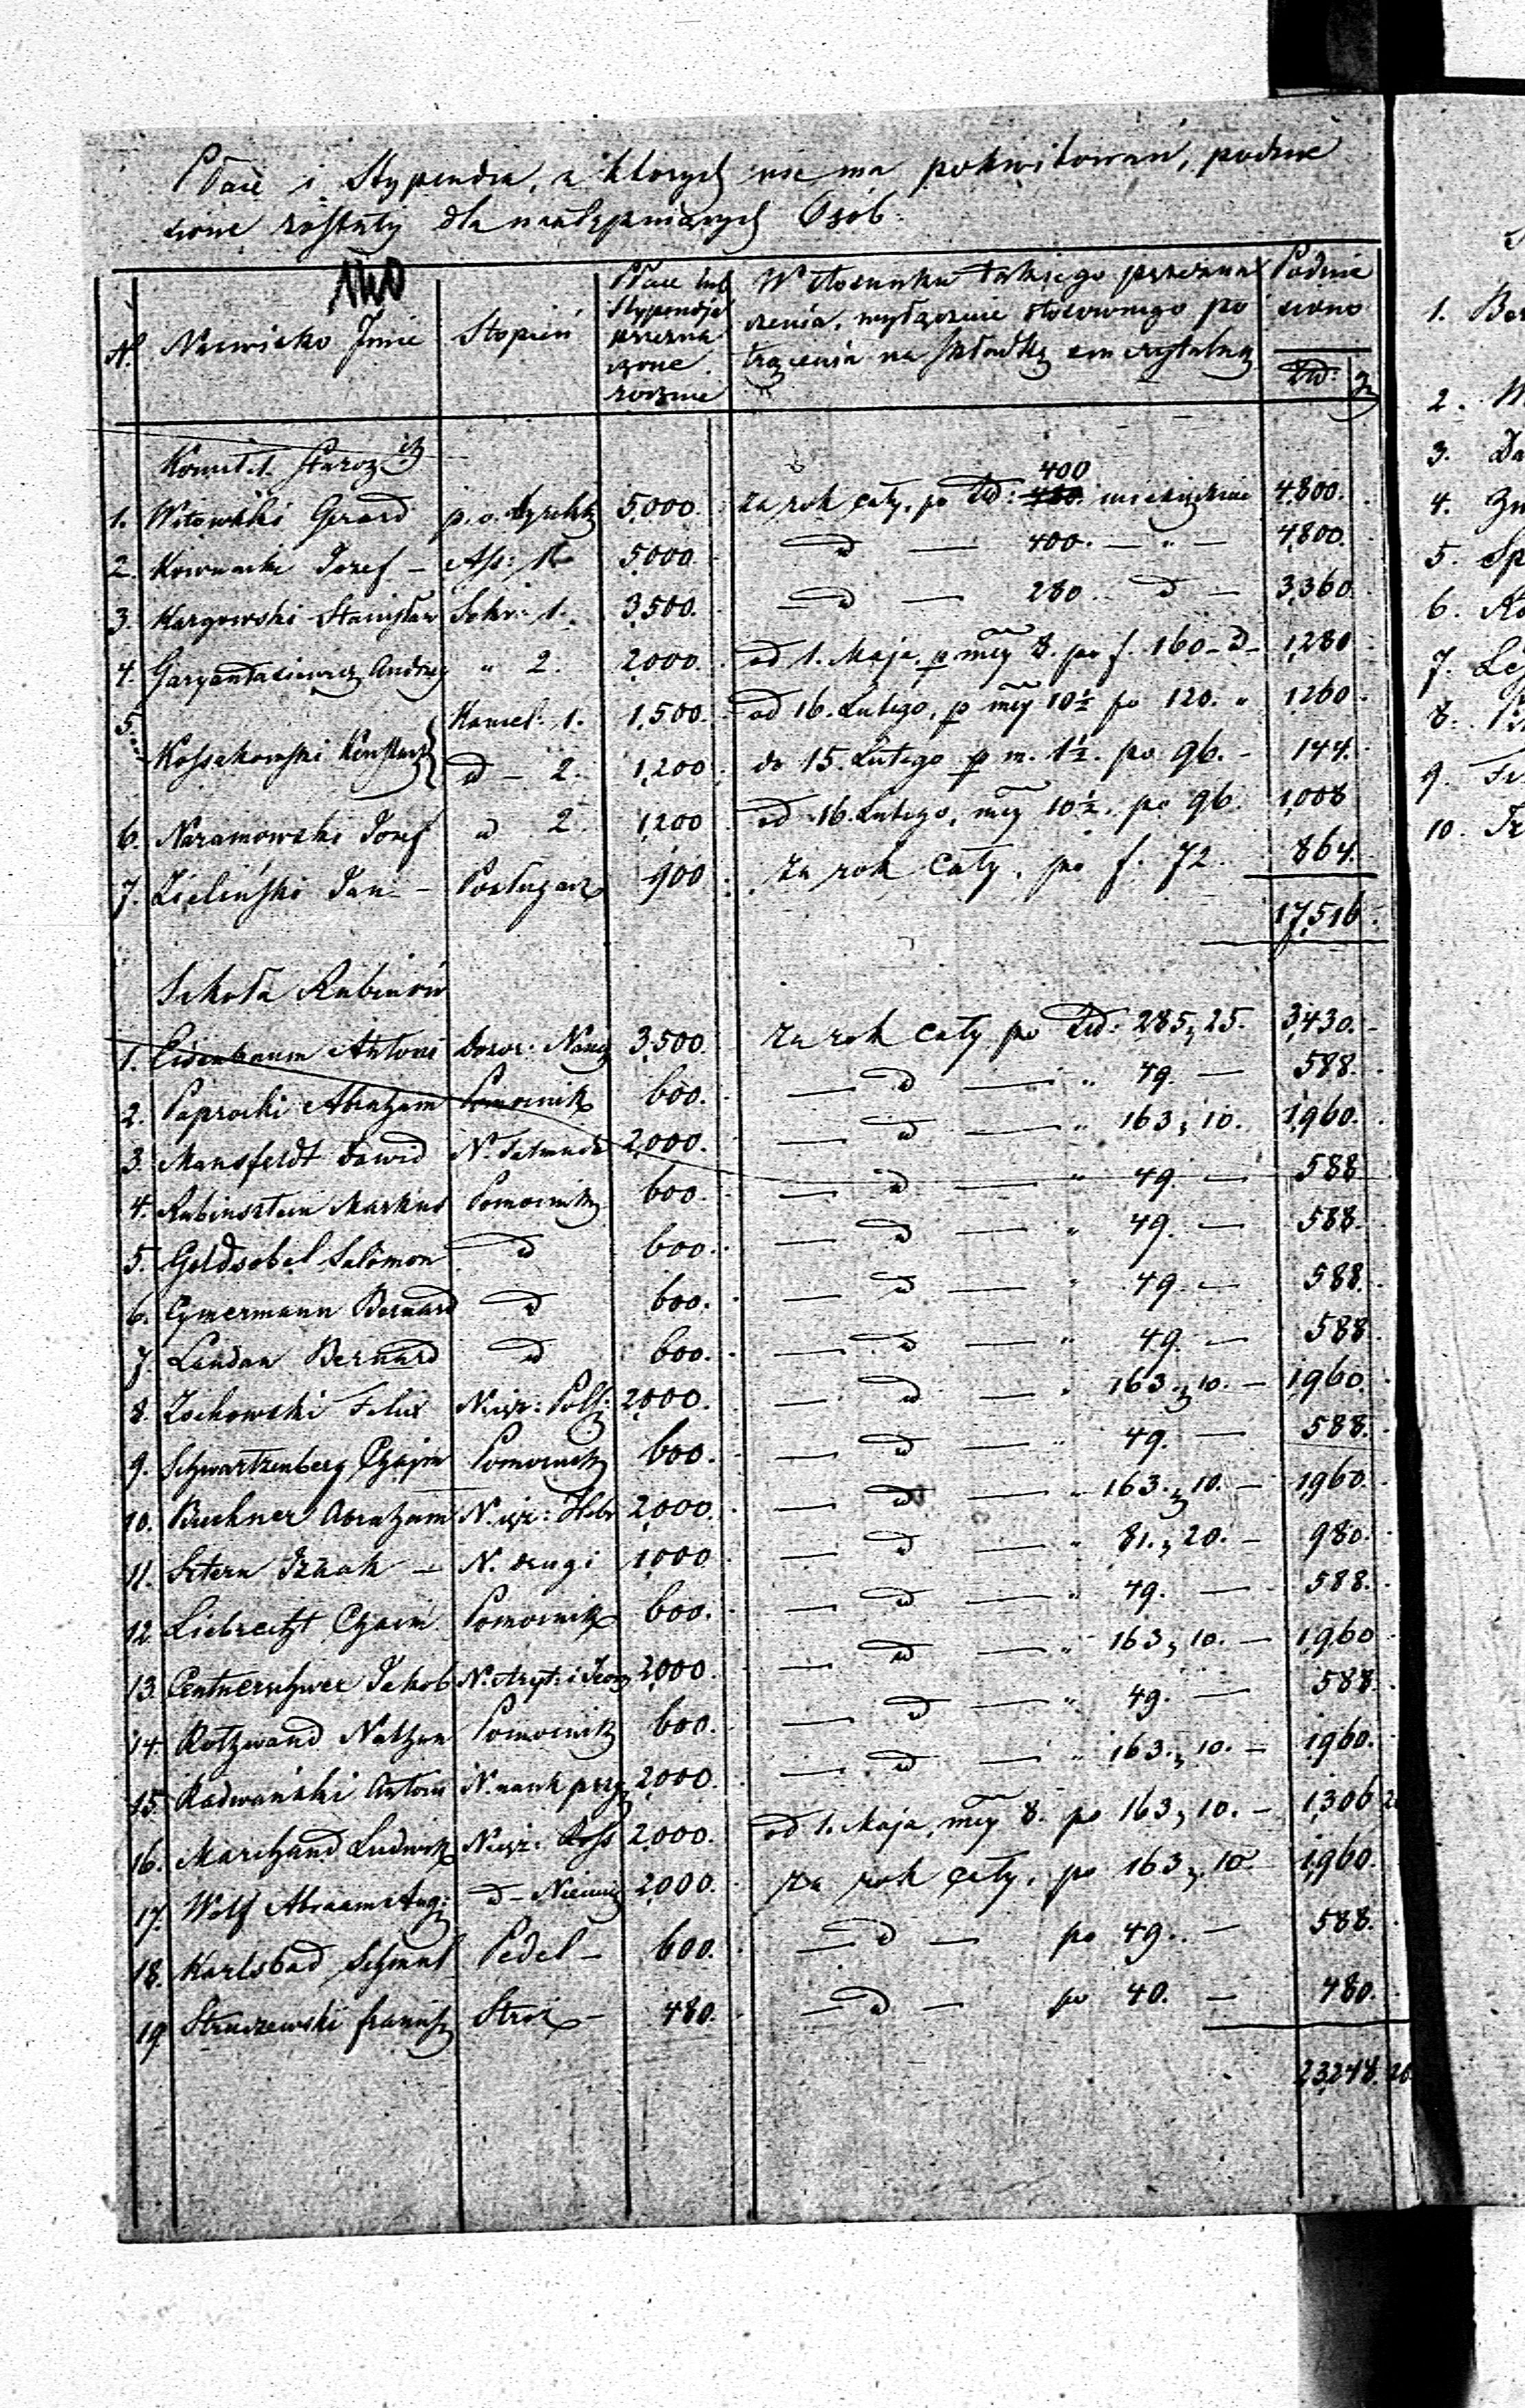 Płace i Stypendia, z których nie ma pokwitowań, podnie
sione zostały dla następujących Osób.
N. Nazwisko Imie Stopień Płace lub Stypendja przezna czone rocznie W stosunku takiego przezna czenia, wyłącznie stosownego po trącenia na składkę emerytalną Podnie siono Złd: gr
Komitet Staroz
1. Witowski Gerard p.o. Dyrekt 5,000. za rok cały, po Złd: 400 miesięcznie 4,800.
2. Kownacki Józef – Ass: 5,000 d — 400. — " — 4,800.
3. Kargowski Stanisław Sekr: 1. 3,500. d — 280. d — 3,360.
4. Garyantasiewicz Andrzej " 2. 2,000. od 1. Maja p mcy 8. po f. 160 – d – 1,280
5. Kossakowski Konstant Kancel: 1. 1,500. od 16. Lutego, p mcy 10½ po 120. " 1,260
d – 2. 1,200 do 15. Lutego p m. 1½. po 96. – 144.
6. Naramowski Józef d 2. 1,200 od 16. Lutego, mcy 10½. po 96. 1,008
7. Zieliński Jan – Posługacz 900 za rok cały, po f. 72 864.
17,516.
Szkoła Rabinów
1. Eisenbaum Antoni Dozor: Nauc 3,500. za rok cały po Złd: 285, 25. 3,430. –
2. Paprocki Abraham Pomocnik 600. — d — " 49. — 588.
3. Mansfeldt Dawid N. Talmudu 2,000. — d — " 163, 10. 1,960.
4. Rubinsztein Markus Pomocnik 600. — d — " 49. — 588
5. Goldsobel Salomon d 600. — d — " 49. — 588.
6. Cymermann Bernard d 600. — d — " 49. — 588.
7. Landau Bernard d 600. — d — " 49. — 588
8. Zochowski Felix N. jęz: Pols: 2,000. — d — " 163. 10. – 1,960.
9. Schwartzenberg Chajm Pomocnik 600. — d — " 49. — 588.
10. Buchner Abraham N. jęz: Hebr 2,000. — d — " 163., 10. – 1,960.
11. Sztern Izaak — N. drugi 1,000. — d — " 81., 20. – 980.
12. Liebrecht Chaim Pomocnik 600. — d — " 49. — 588.
13. Centnerschwer Jakob N. Aryt: i Jeom 2,000. — d — " 163, 10. – 1,960
14. Rothwand Nathan Pomocnik 600. — d — " 49. — 588.
15. Radwański Antoni N. nauk przy 2,000. — d — " 163., 10. – 1,960.
16. Marchand Ludwik N. jęz: Ross 2,000. od 1. Maja, mcy 8. po 163, 10. – 1,306
17. Wolf Abraam Aug: d – Niemie 2,000. za rok cały, po 163, 10 – 1,960.
18. Karlsbad Schmul Pedel – 600. — d — po 49. – 588.
19. Struszewski Franciszek Stróż – 480. — d — po 40. — 480.
23,248. 20
1. Ber
2. M
3. Da
4. Zn
5. Sp
6. Ro
7. Le
8.
9.
10.